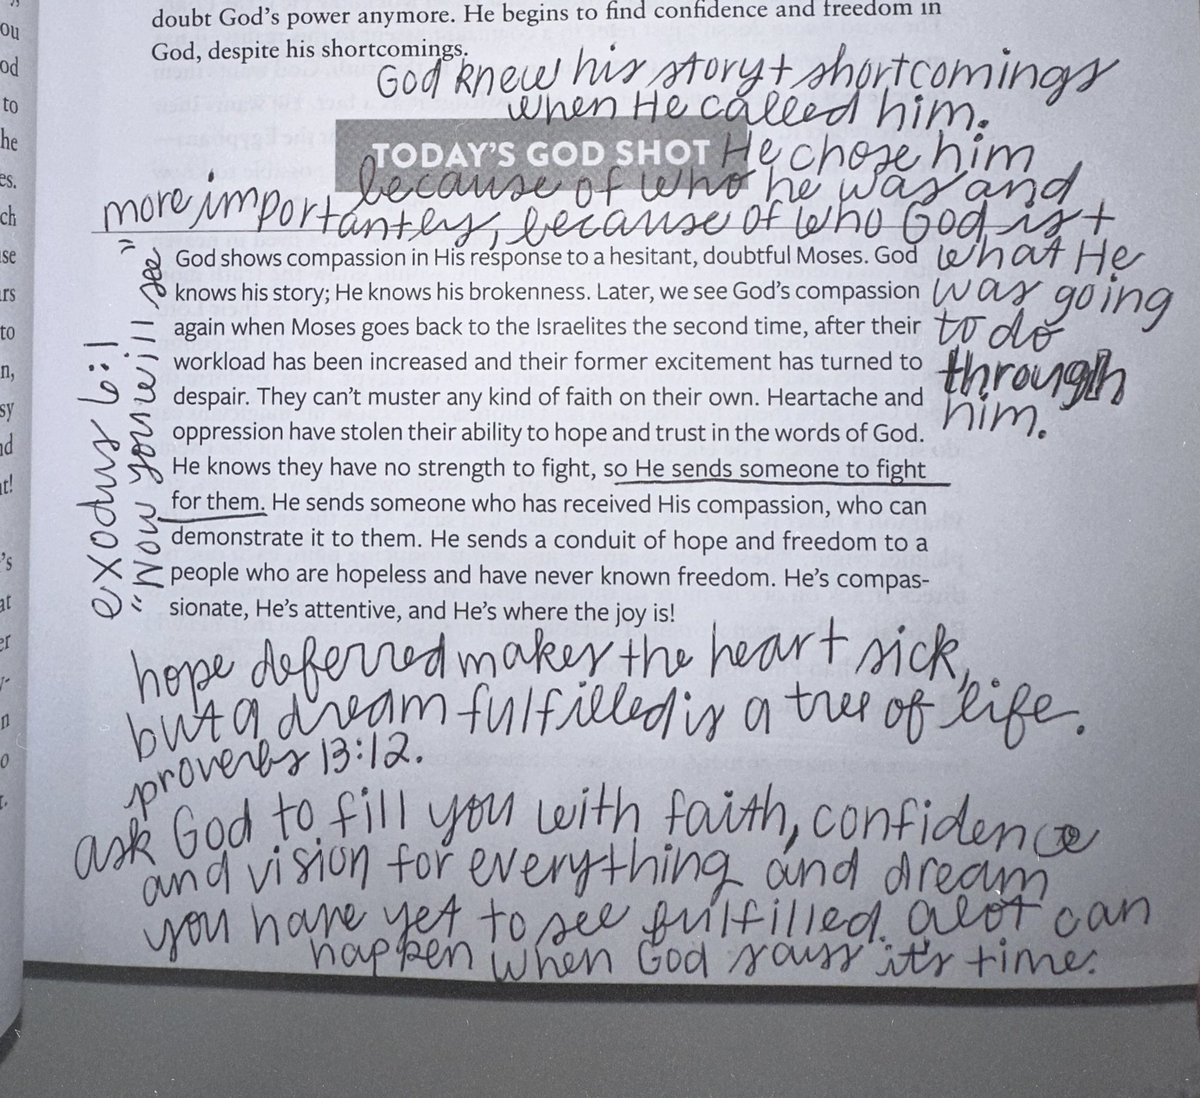 doubt God's power anymore. He begins to find confidence and freedom in
God, despite his shortcomings.
God knew his story + shortcomings
when He called him.
TODAY'S GOD SHOT
He chose him
because of who he was and
more importantly, because of who God is +
what He
was going
to do
through
him.
exodus 6:1
"Now you will see"
God shows compassion in His response to a hesitant, doubtful Moses. God
knows his story; He knows his brokenness. Later, we see God's compassion
again when Moses goes back to the Israelites the second time, after their
workload has been increased and their former excitement has turned to
despair. They can't muster any kind of faith on their own. Heartache and
oppression have stolen their ability to hope and trust in the words of God.
He knows they have no strength to fight, so He sends someone to fight
for them. He sends someone who has received His compassion, who can
demonstrate it to them. He sends a conduit of hope and freedom to a
people who are hopeless and have never known freedom. He's compas-
sionate, He's attentive, and He's where the joy is!
hope deferred makes the heart sick,
but a dream fulfilled is a tree of life.
proverbs 13:12.
ask God to fill you with faith, confidence
and vision for everything and dream
you have yet to see fulfilled. alot can
happen when God says it's time.